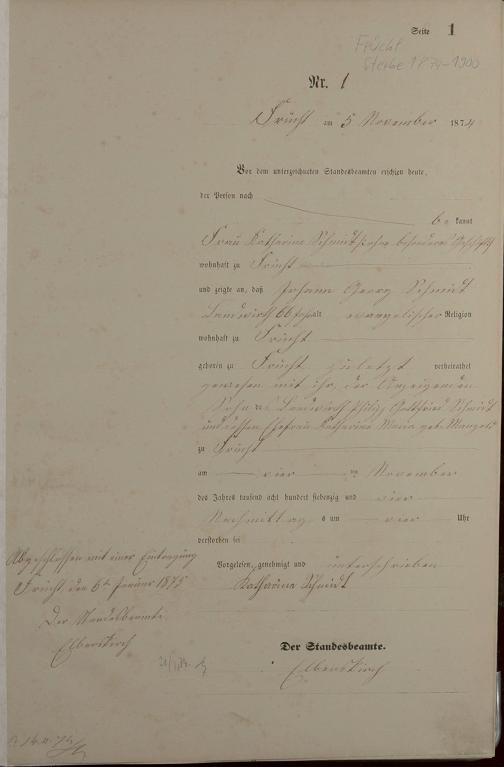 Seite 1
Frücht
Sterbe 1874-1900
Nr. 1
Frücht am 5 November 1874
Vor dem unterzeichneten Standesbeamten erschien heute,
der Person nach
bekannt
Frau Katharina Schmidt ohne besonderes Geschäft
wohnhaft zu Frücht
und zeigte an, daß Johann Georg Schmidt
Landwirth 66 Jahr alt evangelischer Religion
wohnhaft zu Frücht
geboren zu Frücht zuletzt verheirathet
gewesen mit ihr, der Anzeigenden
Sohn des Landwirth Philip Gottfried Schmidt
und dessen Ehefrau Katharina Maria geb. Mangold
zu Frücht
am vier ten November
des Jahres tausend acht hundert siebenzig und vier
Nachmittags um vier Uhr
verstorben sei
Vorgelesen, genehmigt und unterschrieben
Katharina Schmidt
Der Standesbeamte.
Elberskirch
Abgeschlossen mit einer Eintragung
Frücht, den 6ten Januar 1875
Der Standesbeamte
Elberskirch